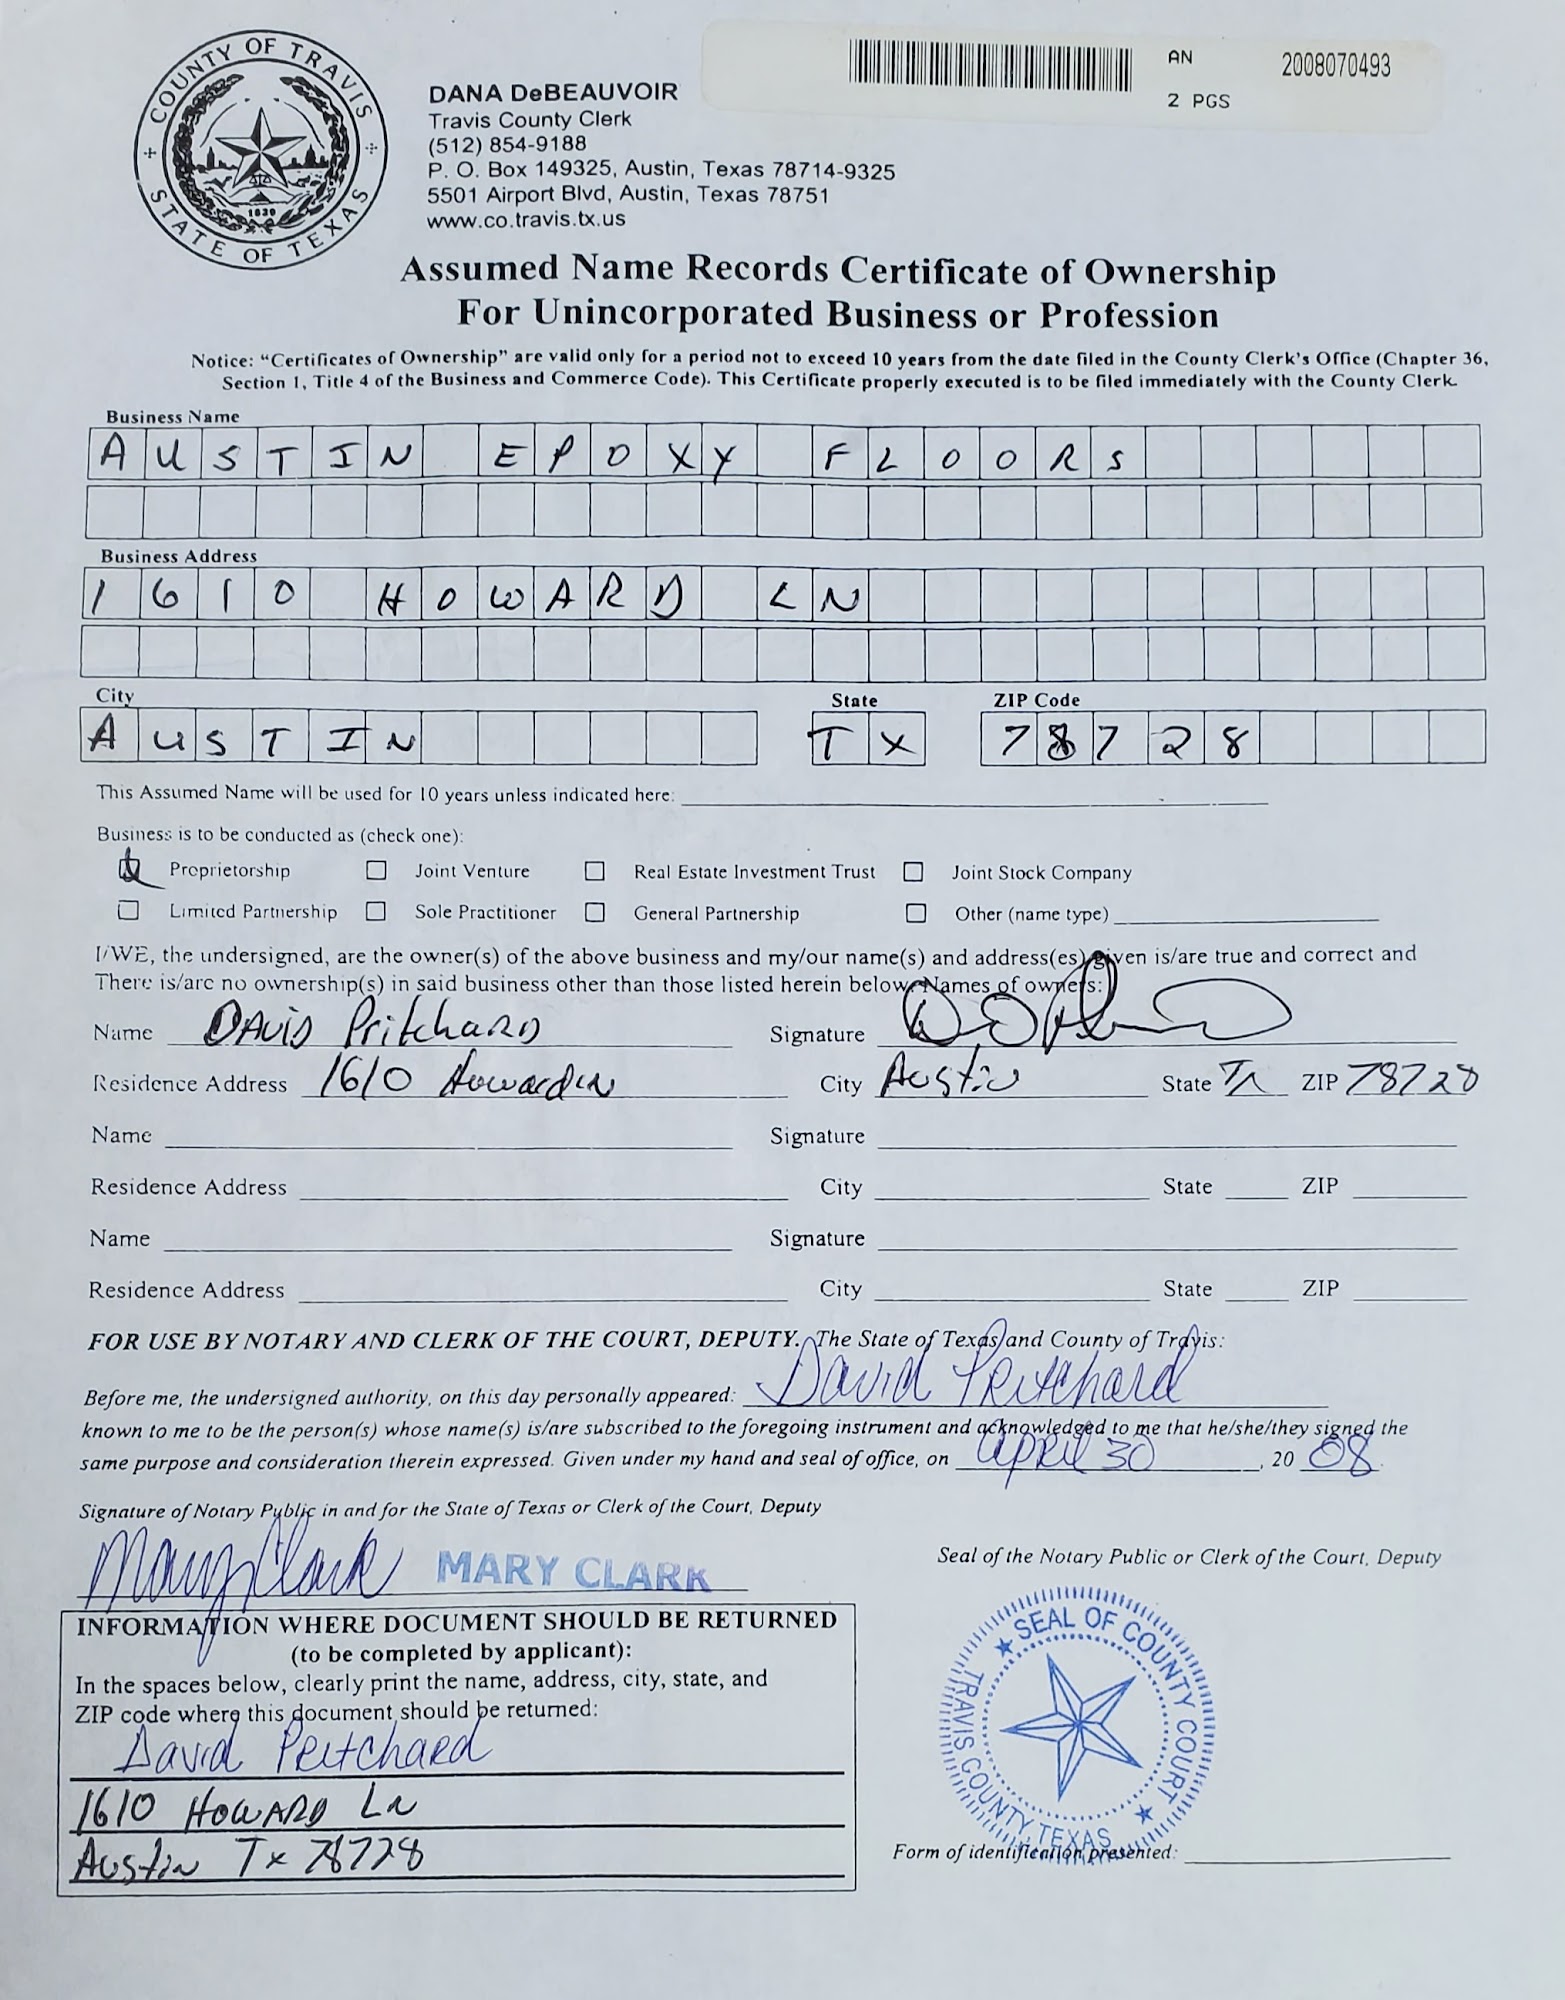 COUNTY OF TRAVIS
STATE OF TEXAS
1839
AN 2008070493
2 PGS
DANA DeBEAUVOIR
Travis County Clerk
(512) 854-9188
P. O. Box 149325, Austin, Texas 78714-9325
5501 Airport Blvd, Austin, Texas 78751
www.co.travis.tx.us
Assumed Name Records Certificate of Ownership
For Unincorporated Business or Profession
Notice: “Certificates of Ownership” are valid only for a period not to exceed 10 years from the date filed in the County Clerk’s Office (Chapter 36,
Section 1, Title 4 of the Business and Commerce Code). This Certificate properly executed is to be filed immediately with the County Clerk.
Business Name
AUSTIN EPOXY FLOORS
Business Address
1610 HOWARD LN
City State ZIP Code
AUSTIN TX 78728
This Assumed Name will be used for 10 years unless indicated here:
Business is to be conducted as (check one):
Proprietorship Joint Venture Real Estate Investment Trust Joint Stock Company
Limited Partnership Sole Practitioner General Partnership Other (name type)
I/WE, the undersigned, are the owner(s) of the above business and my/our name(s) and address(es) given is/are true and correct and
There is/are no ownership(s) in said business other than those listed herein below. Names of owners:
Name DAVID PritchARD Signature
Residence Address 1610 Howard LN City Austin State TX ZIP 78728
Name Signature
Residence Address City State ZIP
Name Signature
Residence Address City State ZIP
FOR USE BY NOTARY AND CLERK OF THE COURT, DEPUTY. The State of Texas and County of Travis:
Before me, the undersigned authority, on this day personally appeared: David Pritchard
known to me to be the person(s) whose name(s) is/are subscribed to the foregoing instrument and acknowledged to me that he/she/they signed the
same purpose and consideration therein expressed. Given under my hand and seal of office, on April 30, 20 08.
Signature of Notary Public in and for the State of Texas or Clerk of the Court, Deputy
Mary Clark MARY CLARK
Seal of the Notary Public or Clerk of the Court, Deputy
INFORMATION WHERE DOCUMENT SHOULD BE RETURNED
(to be completed by applicant):
In the spaces below, clearly print the name, address, city, state, and
ZIP code where this document should be returned:
David Pritchard
1610 HOWARD LN
Austin Tx 78728
SEAL OF COUNTY COURT
TRAVIS COUNTY TEXAS
Form of identification presented: